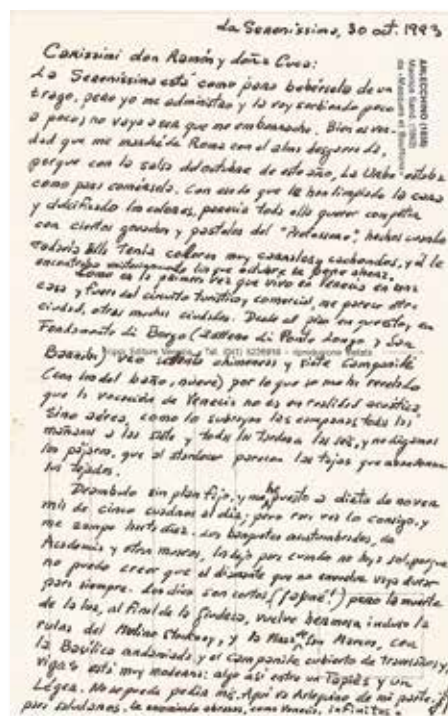 La Serenissima, 30 oct. 1993
Carissimi don Ramón y doña Cuca:
La Serenissima está como para bebérsela de un
trago, pero yo me administro y la voy sorbiendo poco
a poco, no vaya a ser que me emborrache. Bien es ver-
dad que me marché de Roma con el alma desgarrada,
porque con la salsa del octubre de este año, La Urbe estaba
como para comérsela. Con eso de que le han limpiado la cara
y dulcificado los colores, parecía toda ella querer competir
con ciertos gouaches y pasteles del "Professore", hechos cuando
todavía Villa tenía colores muy y cachondos, y él le
encontraba
Como es la primera vez que vivo en Venecia en una
casa y fuera del circuito turístico, comercial, me parece otra
ciudad, otras muchas ciudades. Desde el piso en
Fondamenta di Borgo (Ponte Longo y San
Barnaba) veo setenta chimeneas y siete campanili
(con los del baño, nueve) por lo que se me ha revelado
que la vocación de Venecia no es en realidad acuática,
sino aérea, como lo subrayan las campanas todas las
mañanas a las siete y todas las tardes a las seis, y no digamos
los pájaros, que al atardecer parecen las tejas que abandonan
los tejados.
Deambulo sin plan fijo, y me he puesto a dieta de no ver
más de cinco cuadros al día; pero rara vez lo consigo, y
me zampo hasta diez. Los banquetes acostumbrados, de
Academia y otros museos, los dejo para cuando no haya sol, porque
no puedo creer que el diamante que nos envuelve vaya a durar
para siempre. Los días son cortos (¡) pero la muerte
de la luz, al final de la Giudecca, vuelve hermosa incluso la
del Molino Stucky, y la Plaza de San Marcos, con
la Basílica andamiada y el Campanile cubierto de transistores y
vigas está muy moderna: algo así entre un Tàpies y un
Léger. No se puede pedir más. Aquí va Arlequino de mi parte,
para saludaros. abrazos, como Venecia, infinitos.
ARLECCHINO (1858)
Maurice Sand, (1860)
da «Masques et Bouffons»